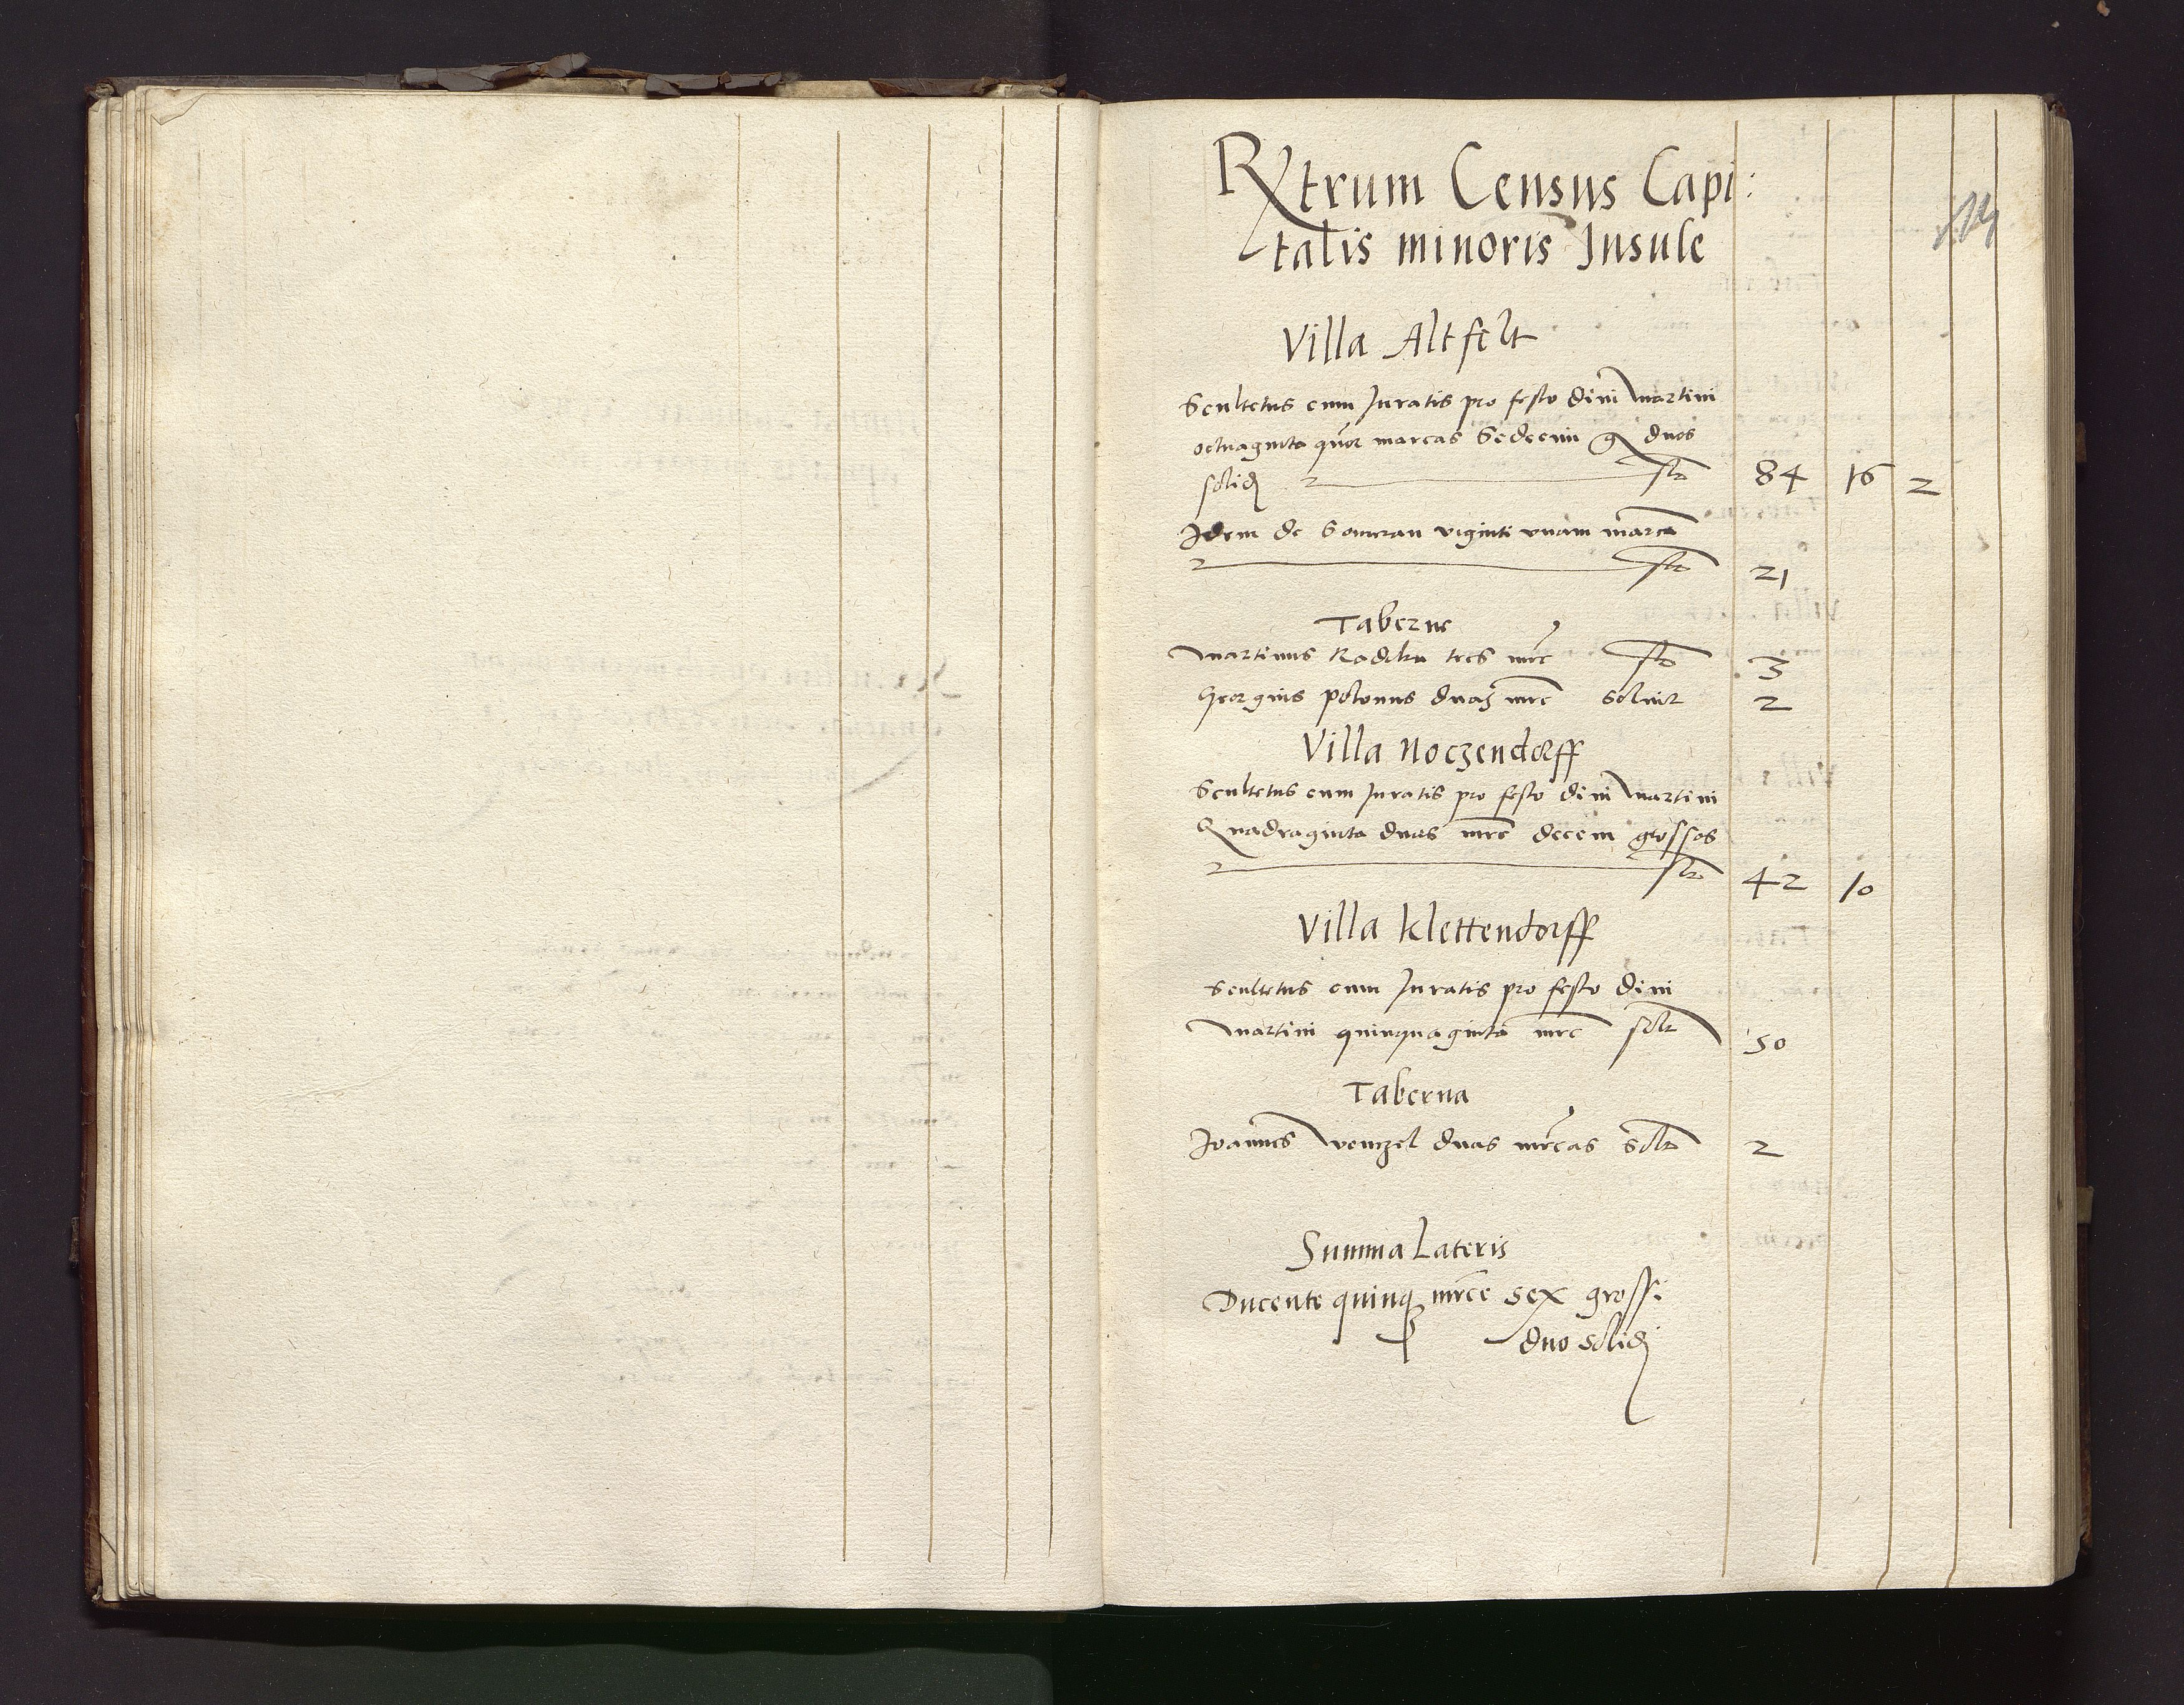 Rxtrum Census Capi:
talis minoris Insule
Villa Altfelt
Scultetus cum Juratis pro festo divi Martini
octuaginta quor marcas Sedecim g duos
solid slt 84 16 2
Idem de Somerau viginti unam marca
slt 21
Taberne
Martinus Radike tres mrc slt 3
Georgius polonus duas mrc soluit 2
Villa Noczendorff
Scultetus cum Juratis pro festo divi Martini
Quadraginta duas mrc decem grossos
slt 42 10
Villa Klettendorff
Scultetus cum Juratis pro festo divi
Martini quinquaginta mrc solt 50
Taberna
Joannes Wenczel duas mrcas solt 2
Summa Lateris
Ducente quinq mrce sex grossi
duo solid